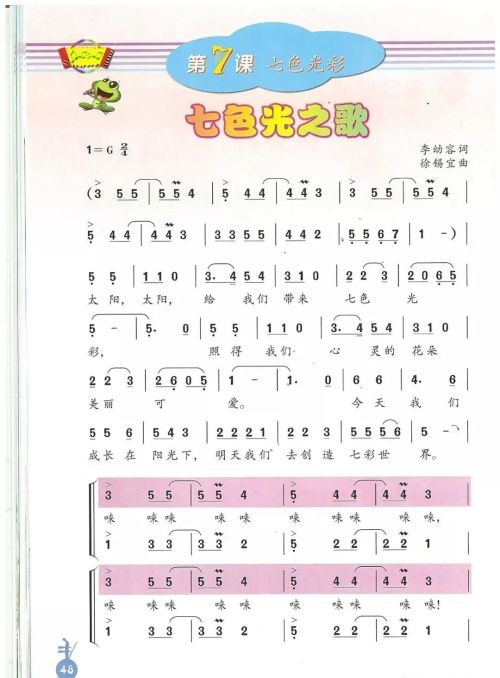 第7课 七色光彩
七色光之歌
1=G 2/4
李幼容 词
徐锡宜 曲
(3 5 5 | 5 5 4 | 5 4 4 | 4 4 3 | 3 5 5 | 5 5 4 |
5 4 4 | 4 4 3 | 3 3 5 5 | 4 4 2 | 5 5 6 7 | 1 - ) |
5 5 | 1 1 0 | 3. 4 5 4 | 3 1 0 | 2 2 3 | 2 0 6 5 |
太阳, 太阳, 给 我们 带来 七色 光
5 - | 5. 0 | 5 5 | 1 1 0 | 3. 4 5 4 | 3 1 0 |
彩, 照得 我们 心 灵的 花朵
2 2 3 | 2 6 0 5 | 1 - | 1. 0 | 6 6 | 4. 6 |
美丽 可 爱。 今天 我们
5 5 6 | 5 4 3 | 2 2 2 1 | 2 2 3 | 5 5 5 6 | 5 - |
成长在 阳光下, 明天我们 去创造 七彩世 界。
3 5 5 | 5 5 4 | 5 4 4 | 4 4 3
唻 唻唻 唻唻 唻 唻唻 唻唻,
1 3 3 | 3 3 2 | 5 2 2 | 2 2 1
3 5 5 | 5 5 4 | 5 4 4 | 4 4 3
唻 唻唻 唻唻 唻 唻唻 唻唻!
1 3 3 | 3 3 2 | 5 2 2 | 2 2 1
48